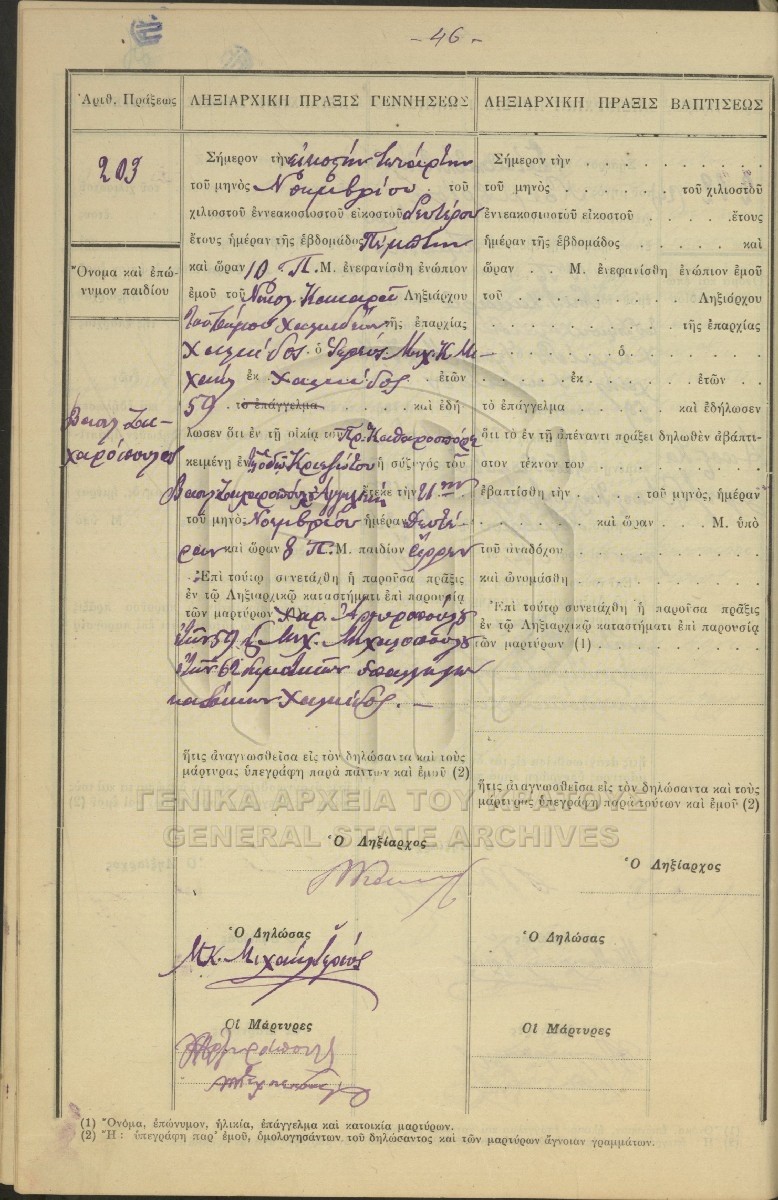 - 46 -
Ἀριθ. Πράξεως
ΛΗΞΙΑΡΧΙΚΗ ΠΡΑΞΙΣ ΓΕΝΝΗΣΕΩΣ
ΛΗΞΙΑΡΧΙΚΗ ΠΡΑΞΙΣ ΒΑΠΤΙΣΕΩΣ
203
Ὄνομα καὶ ἐπώ-
νυμον παιδίου
Βασιλ. Ζα-
χαρόπουλος
Σήμερον τὴν εἰκοστὴν τετάρτην
τοῦ μηνὸς Νοεμβρίου . τοῦ
χιλιοστοῦ ἐννεακοσιοστοῦ εἰκοστοῦ δευτέρου
ἔτους ἡμέραν τῆς ἑβδομάδος Πέμπτην
καὶ ὥραν 10 Π. Μ. ἐνεφανίσθη ἐνώπιον
ἐμοῦ τοῦ Νικολ. Ληξιάρχου
τοῦ Δήμου Χαλκιδέων τῆς ἐπαρχίας
Χαλκίδος . ὁ Ἱερεὺς Μιχ. Κ. Μι-
χαήλ ἐκ Χαλκίδος . ἐτῶν
59 . τὸ ἐπάγγελμα . . . . . . καὶ ἐδή
λωσεν ὅτι ἐν τῇ οἰκίᾳ τοῦ
κειμένῃ ἐν ὁδῷ Κριεζώτου ἡ σύζυγος τοῦ
Βασιλ. Ζαχαροπούλου Ἀγγελικὴ ἔτεκε τὴν 21ην
τοῦ μηνὸς Νοεμβρίου ἡμέραν Δευτέ-
ραν καὶ ὥραν 8 Π. Μ. παιδίον ἄρρεν
Ἐπὶ τούτῳ συνετάχθη ἡ παροῦσα πρᾶξις
ἐν τῷ Ληξιαρχικῷ καταστήματι ἐπὶ παρουσίᾳ
τῶν μαρτύρων (1) Χαρ. Ἀργυροπούλου
ἐτῶν 59 Μιχ.
ἐτῶν 62 δημοτικῶν ὑπαλλήλων
κατοίκων Χαλκίδος. —
ἥτις ἀναγνωσθεῖσα εἰς τὸν δηλώσαντα καὶ τοὺς
μάρτυρας ὑπεγράφη παρὰ πάντων καὶ ἐμοῦ (2)
Ὁ Ληξίαρχος
Ὁ Δηλώσας
Μ. Κ. Μιχαήλ Ἱερεύς
Οἱ Μάρτυρες
Σήμερον τὴν . . . . . . . . .
τοῦ μηνὸς . . . . . . . τοῦ χιλιοστοῦ
ἐννεακοσιοστοῦ εἰκοστοῦ . . . . . . ἔτους
ἡμέραν τῆς ἑβδομάδος . . . . . . καὶ
ὥραν . . Μ. ἐνεφανίσθη ἐνώπιον ἐμοῦ
τοῦ . . . . . . . . . . Ληξιάρχου
. . . . . . . . . . . τῆς ἐπαρχίας
. . . . . . . . ὁ . . . . . . . .
. . . . . ἐκ . . . . . . ἐτῶν . .
τὸ ἐπάγγελμα . . . . . καὶ ἐδήλωσεν
ὅτι τὸ ἐν τῇ ἀπέναντι πράξει δηλωθὲν ἀβάπτι-
στον τέκνον του . . . . . . . . .
ἐβαπτίσθη τὴν . . . . τοῦ μηνός, ἡμέραν
. . . . . . . καὶ ὥραν . . . Μ. ὑπὸ
τοῦ ἀναδόχου . . . . . . . . . .
καὶ ὠνομάσθη . . . . . . . . . .
Ἐπὶ τούτῳ συνετάχθη ἡ παροῦσα πρᾶξις
ἐν τῷ Ληξιαρχικῷ καταστήματι ἐπὶ παρουσίᾳ
τῶν μαρτύρων (1) . . . . . . . . .
ἥτις ἀναγνωσθεῖσα εἰς τὸν δηλώσαντα καὶ τοὺς
μάρτυρας ὑπεγράφη παρὰ τούτων καὶ ἐμοῦ (2)
Ὁ Ληξίαρχος
Ὁ Δηλώσας
Οἱ Μάρτυρες
ΓΕΝΙΚΑ ΑΡΧΕΙΑ ΤΟΥ ΚΡΑΤΟΥΣ
GENERAL STATE ARCHIVES
(1) Ὄνομα, ἐπώνυμον, ἡλικία, ἐπάγγελμα καὶ κατοικία μαρτύρων.
(2) Ἤ : ὑπεγράφη παρ' ἐμοῦ, ὁμολογησάντων τοῦ δηλώσαντος καὶ τῶν μαρτύρων ἄγνοιαν γραμμάτων.